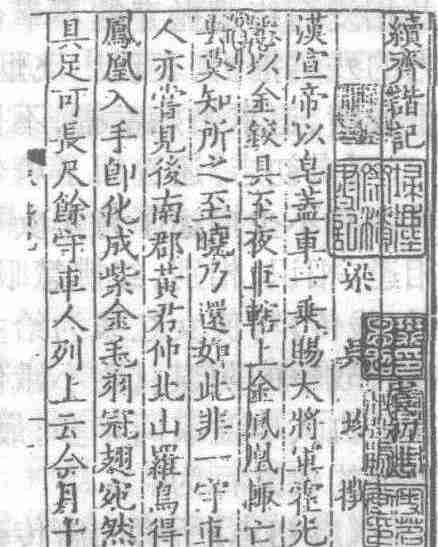 續齊諧記
梁 吳均撰
漢宣帝以皂蓋車一乗賜大將軍霍光
以金鉸具至夜車轄上金鳳凰輙亡
莫知所之至曉乃還如此非一守車
人亦嘗見後南郡黃君仲北山羅鳥得
鳳凰入手即化成紫金毛羽冠翅宛然
具足可長尺餘守車人列上云今月十